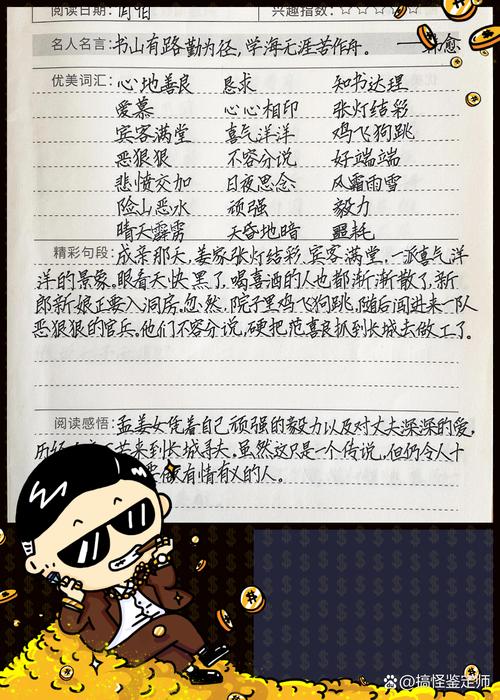 阅读日期:
兴趣指数:☆☆☆☆
名人名言:书山有路勤为径,学海无涯苦作舟。 ——韩愈
优美词汇:心地善良 恳求 知书达理
爱慕 心心相印 张灯结彩
宾客满堂 喜气洋洋 鸡飞狗跳
恶狠狠 不容分说 好端端
悲愤交加 日夜思念 风霜雨雪
险山恶水 顽强 毅力
晴天霹雳 天昏地暗 噩耗
精彩句段:成亲那天,姜家张灯结彩,宾客满堂,一派喜气洋
洋的景象。眼看天快黑了,喝喜酒的人也都渐渐散了,新
郎新娘正要入洞房,忽然,院子里鸡飞狗跳,随后闯进来一队
恶狠狠的官兵。他们不容分说,硬把范喜良抓到长城去做工了。
阅读感悟:孟姜女凭着自己顽强的毅力以及对丈夫深深的爱,
历经 来到长城寻夫。虽然这只是一个传说,但仍令人十
做有情有义的人。
@搞怪鉴定师